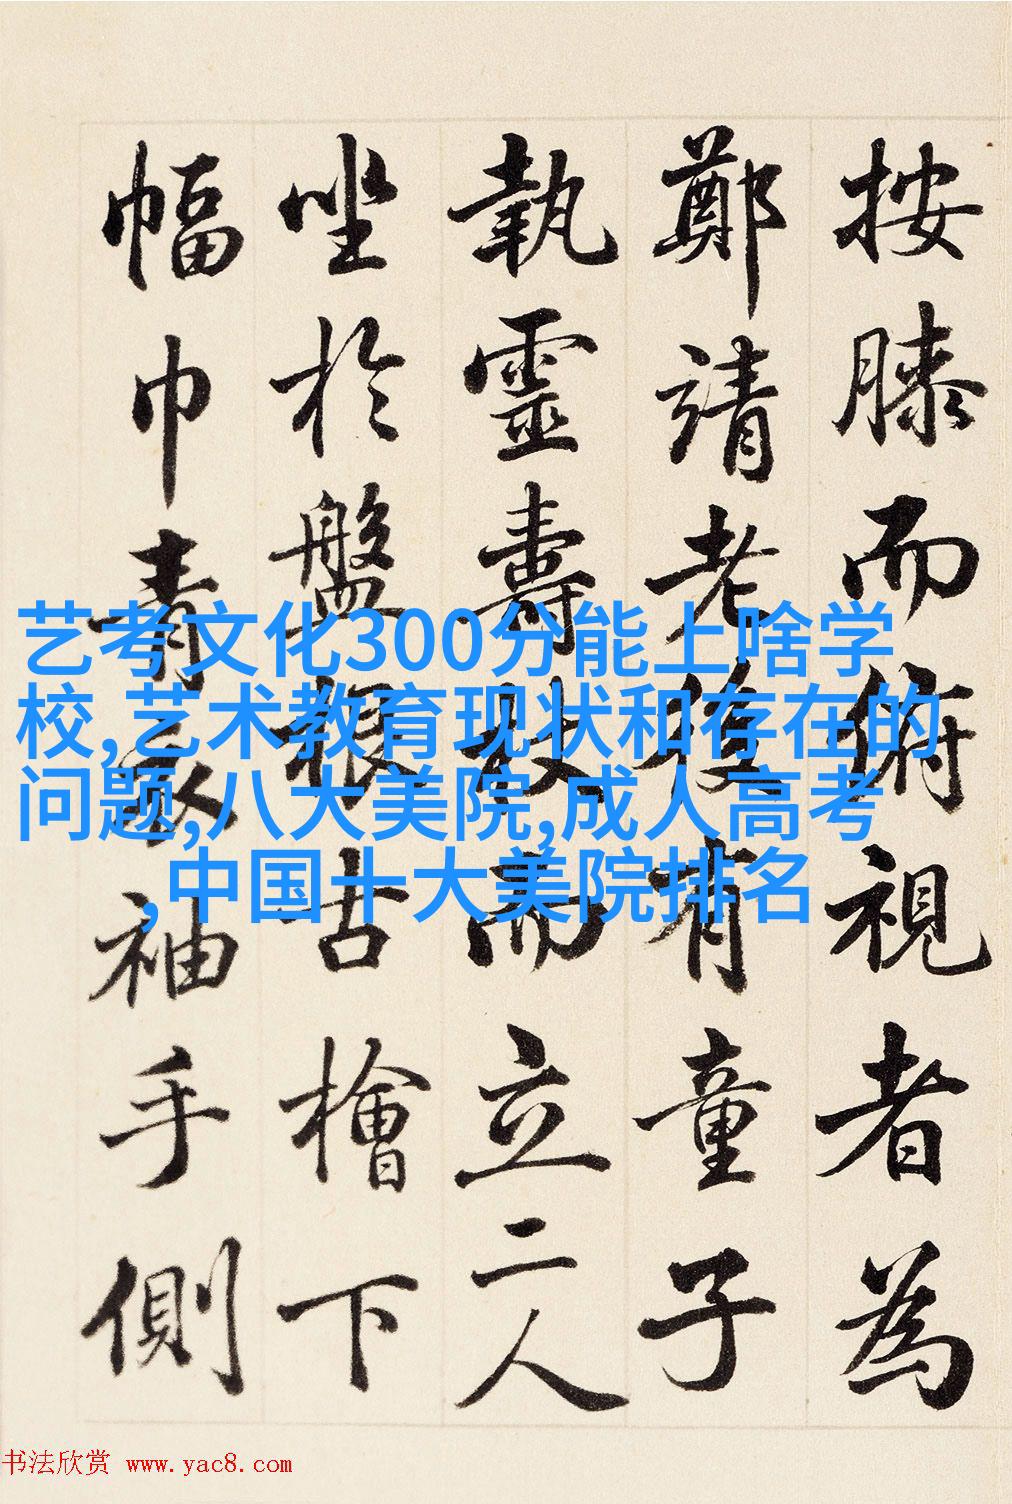 按膝而俯視者為
鄭靖老後有童子
執靈壽杖而立二人
坐於盤根古檜下
幅巾青衣袖手側
艺考文化300分能上啥学
校,艺术教育现状和存在的
问题,八大美院,成人高考
,中国十大美院排名
书法欣赏 www.yac8.com